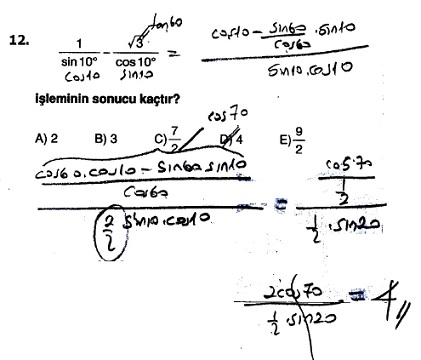 tan60
12. 1/sin10° - √3/cos10° = (cos10 - sin60/cos60 . sin10)/(sin10.cos10)
cos10 sin10
işleminin sonucu kaçtır?
cos70
A) 2 B) 3 C) 7/2 D) 4 E) 9/2
((cos60.cos10 - sin60 sin10)/cos60)/(2/2 sin10.cos10) = (cos70/(1/2))/(1/2 . sin20)
2cos70/(1/2 . sin20) = 4,,